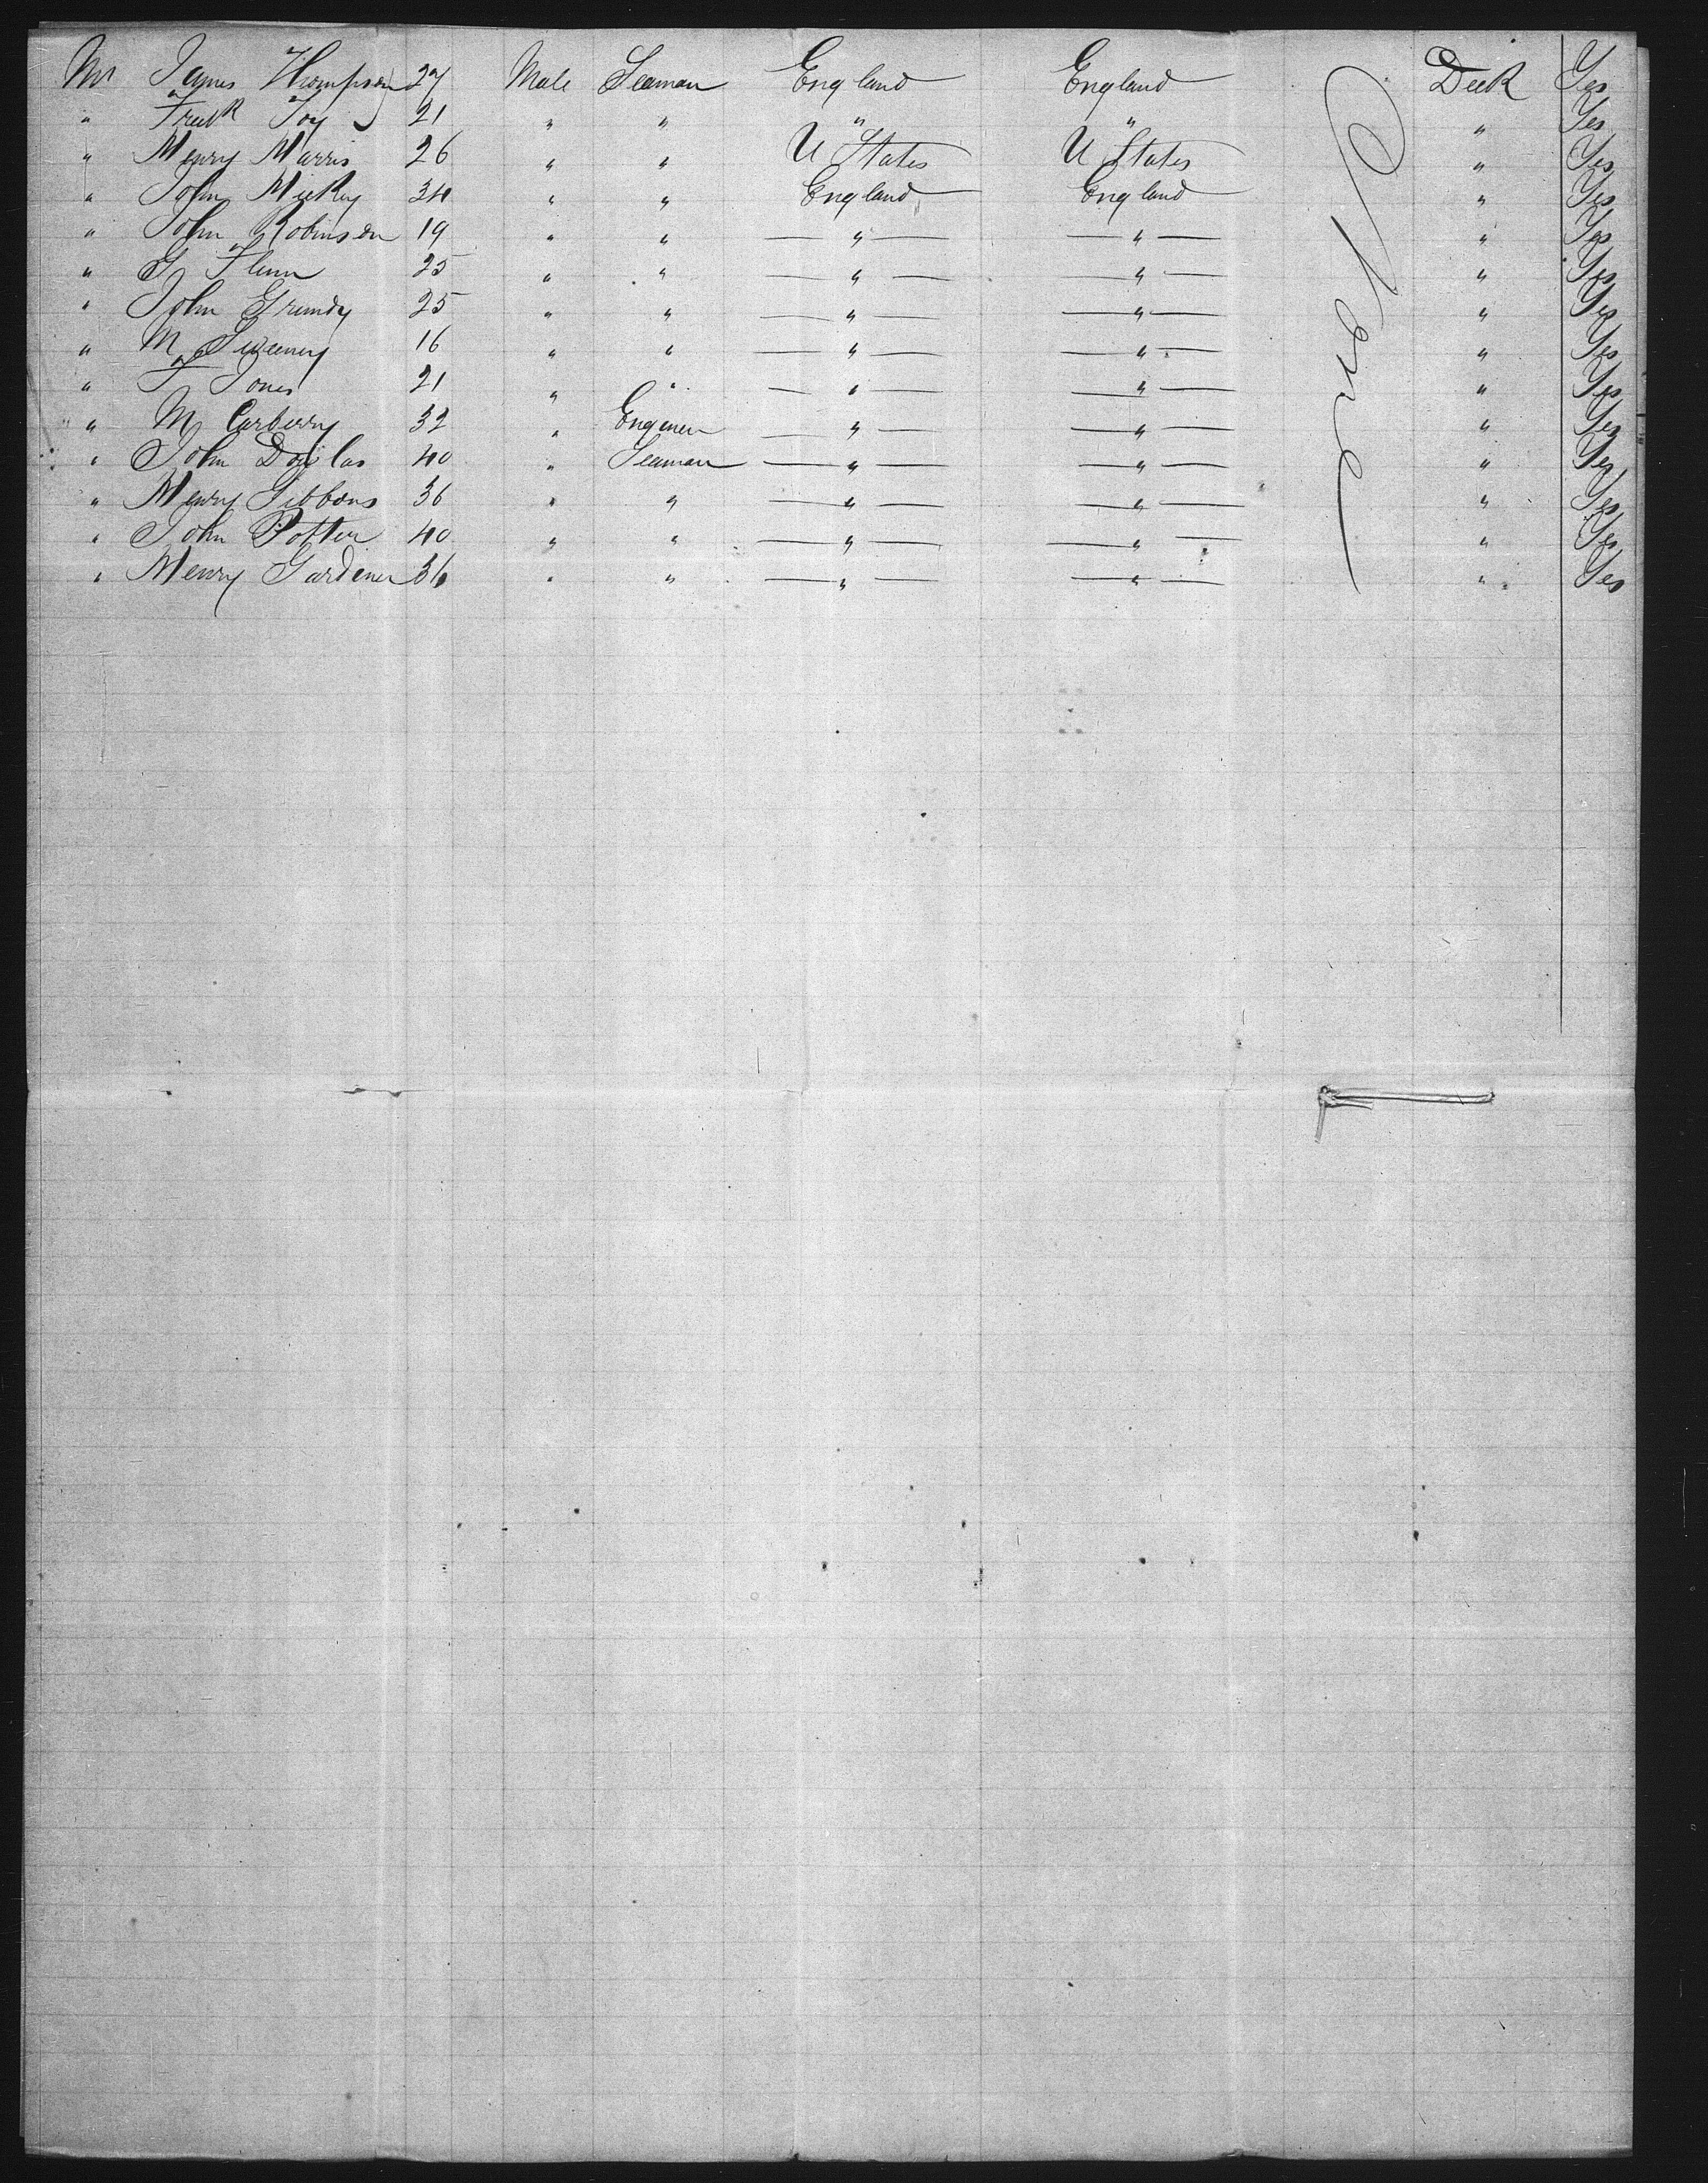 Mr James Thompson 27 Male Seaman England England Deck Yes
" Fredk Joy 21 " " " " " Yes
" Henry Harris 26 " " U States U States " Yes
" John 34 " " England England " Yes
" John Robinson 19 " " — " — — " — " Yes
" G Flenn 25 " " — " — — " — " Yes
" John Grundy 25 " " — " — — " — " Yes
" M Sweeney 16 " " — " — — " — " Yes
" T Jones 21 " " — " — — " — " Yes
" M Carberry 32 " Enginer — " — — " — " Yes
" John Douglas 40 " Seaman — " — — " — " Yes
" Henry Gibbons 36 " " — " — — " — " Yes
" John Potter 40 " " — " — — " — " Yes
" Henry Gardener 36 " " — " — — " — " Yes